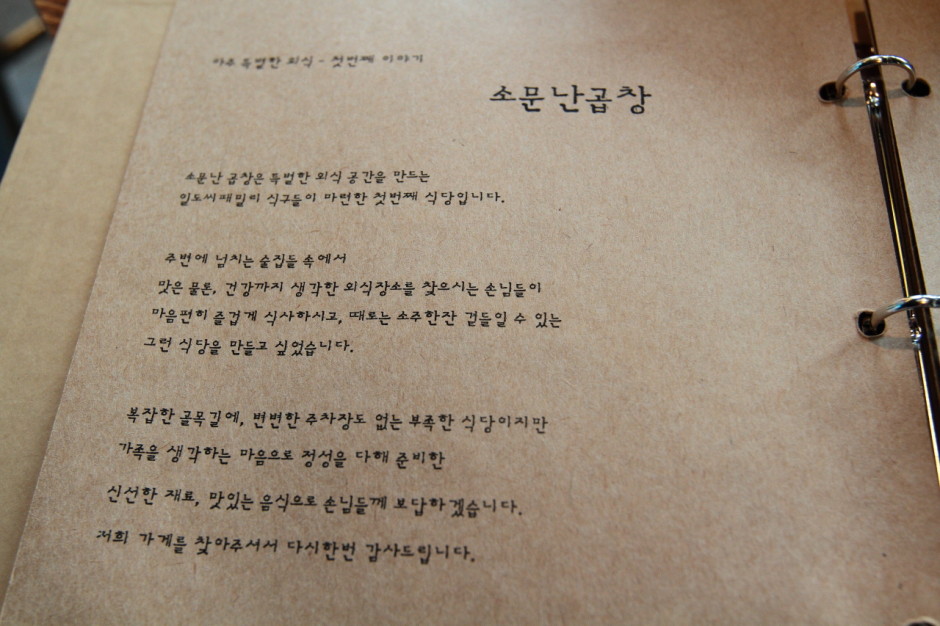 아주 특별한 외식 - 첫번째 이야기
소문난곱창
소문난 곱창은 특별한 외식 공간을 만드는
일도씨패밀리 식구들이 마련한 첫번째 식당입니다.
주변에 넘치는 술집들 속에서
맛은 물론, 건강까지 생각한 외식장소를 찾으시는 손님들이
마음편히 즐겁게 식사하시고, 때로는 소주한잔 곁들일 수 있는
그런 식당을 만들고 싶었습니다.
복잡한 골목길에, 변변한 주차장도 없는 부족한 식당이지만
가족을 생각하는 마음으로 정성을 다해 준비한
신선한 재료, 맛있는 음식으로 손님들께 보답하겠습니다.
저희 가게를 찾아주셔서 다시한번 감사드립니다.